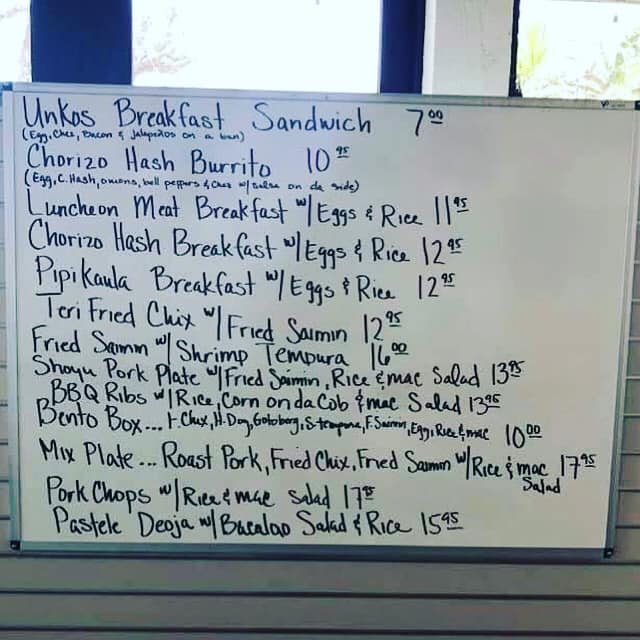 Unkos Breakfast Sandwich 7.00
(Egg, Chez, Bacon & Jalapeños on a bun)
Chorizo Hash Burrito 10.95
(Egg, C. Hash, onions, bell peppers & Chez w/ Salsa on da side)
Luncheon Meat Breakfast w/ Eggs & Rice 11.95
Chorizo Hash Breakfast w/ Eggs & Rice 12.95
Pipikaula Breakfast w/ Eggs & Rice 12.95
Teri Fried Chix w/ Fried Saimin 12.95
Fried Saimin w/ Shrimp Tempura 16.00
Shoyu Pork Plate w/ Fried Saimin, Rice & mac Salad 13.95
BBQ Ribs w/ Rice, Corn on da Cob & mac Salad 13.95
Bento Box... H-Dog, F. Saimin, Egg, Rice & mac 10.00
Mix Plate... Roast Pork, Fried Chix, Fried Saimin w/ Rice & mac 17.95
Salad
Pork Chops w/ Rice & mac Salad
Pastele Deoja w/ Bacalao Salad & Rice 15.95